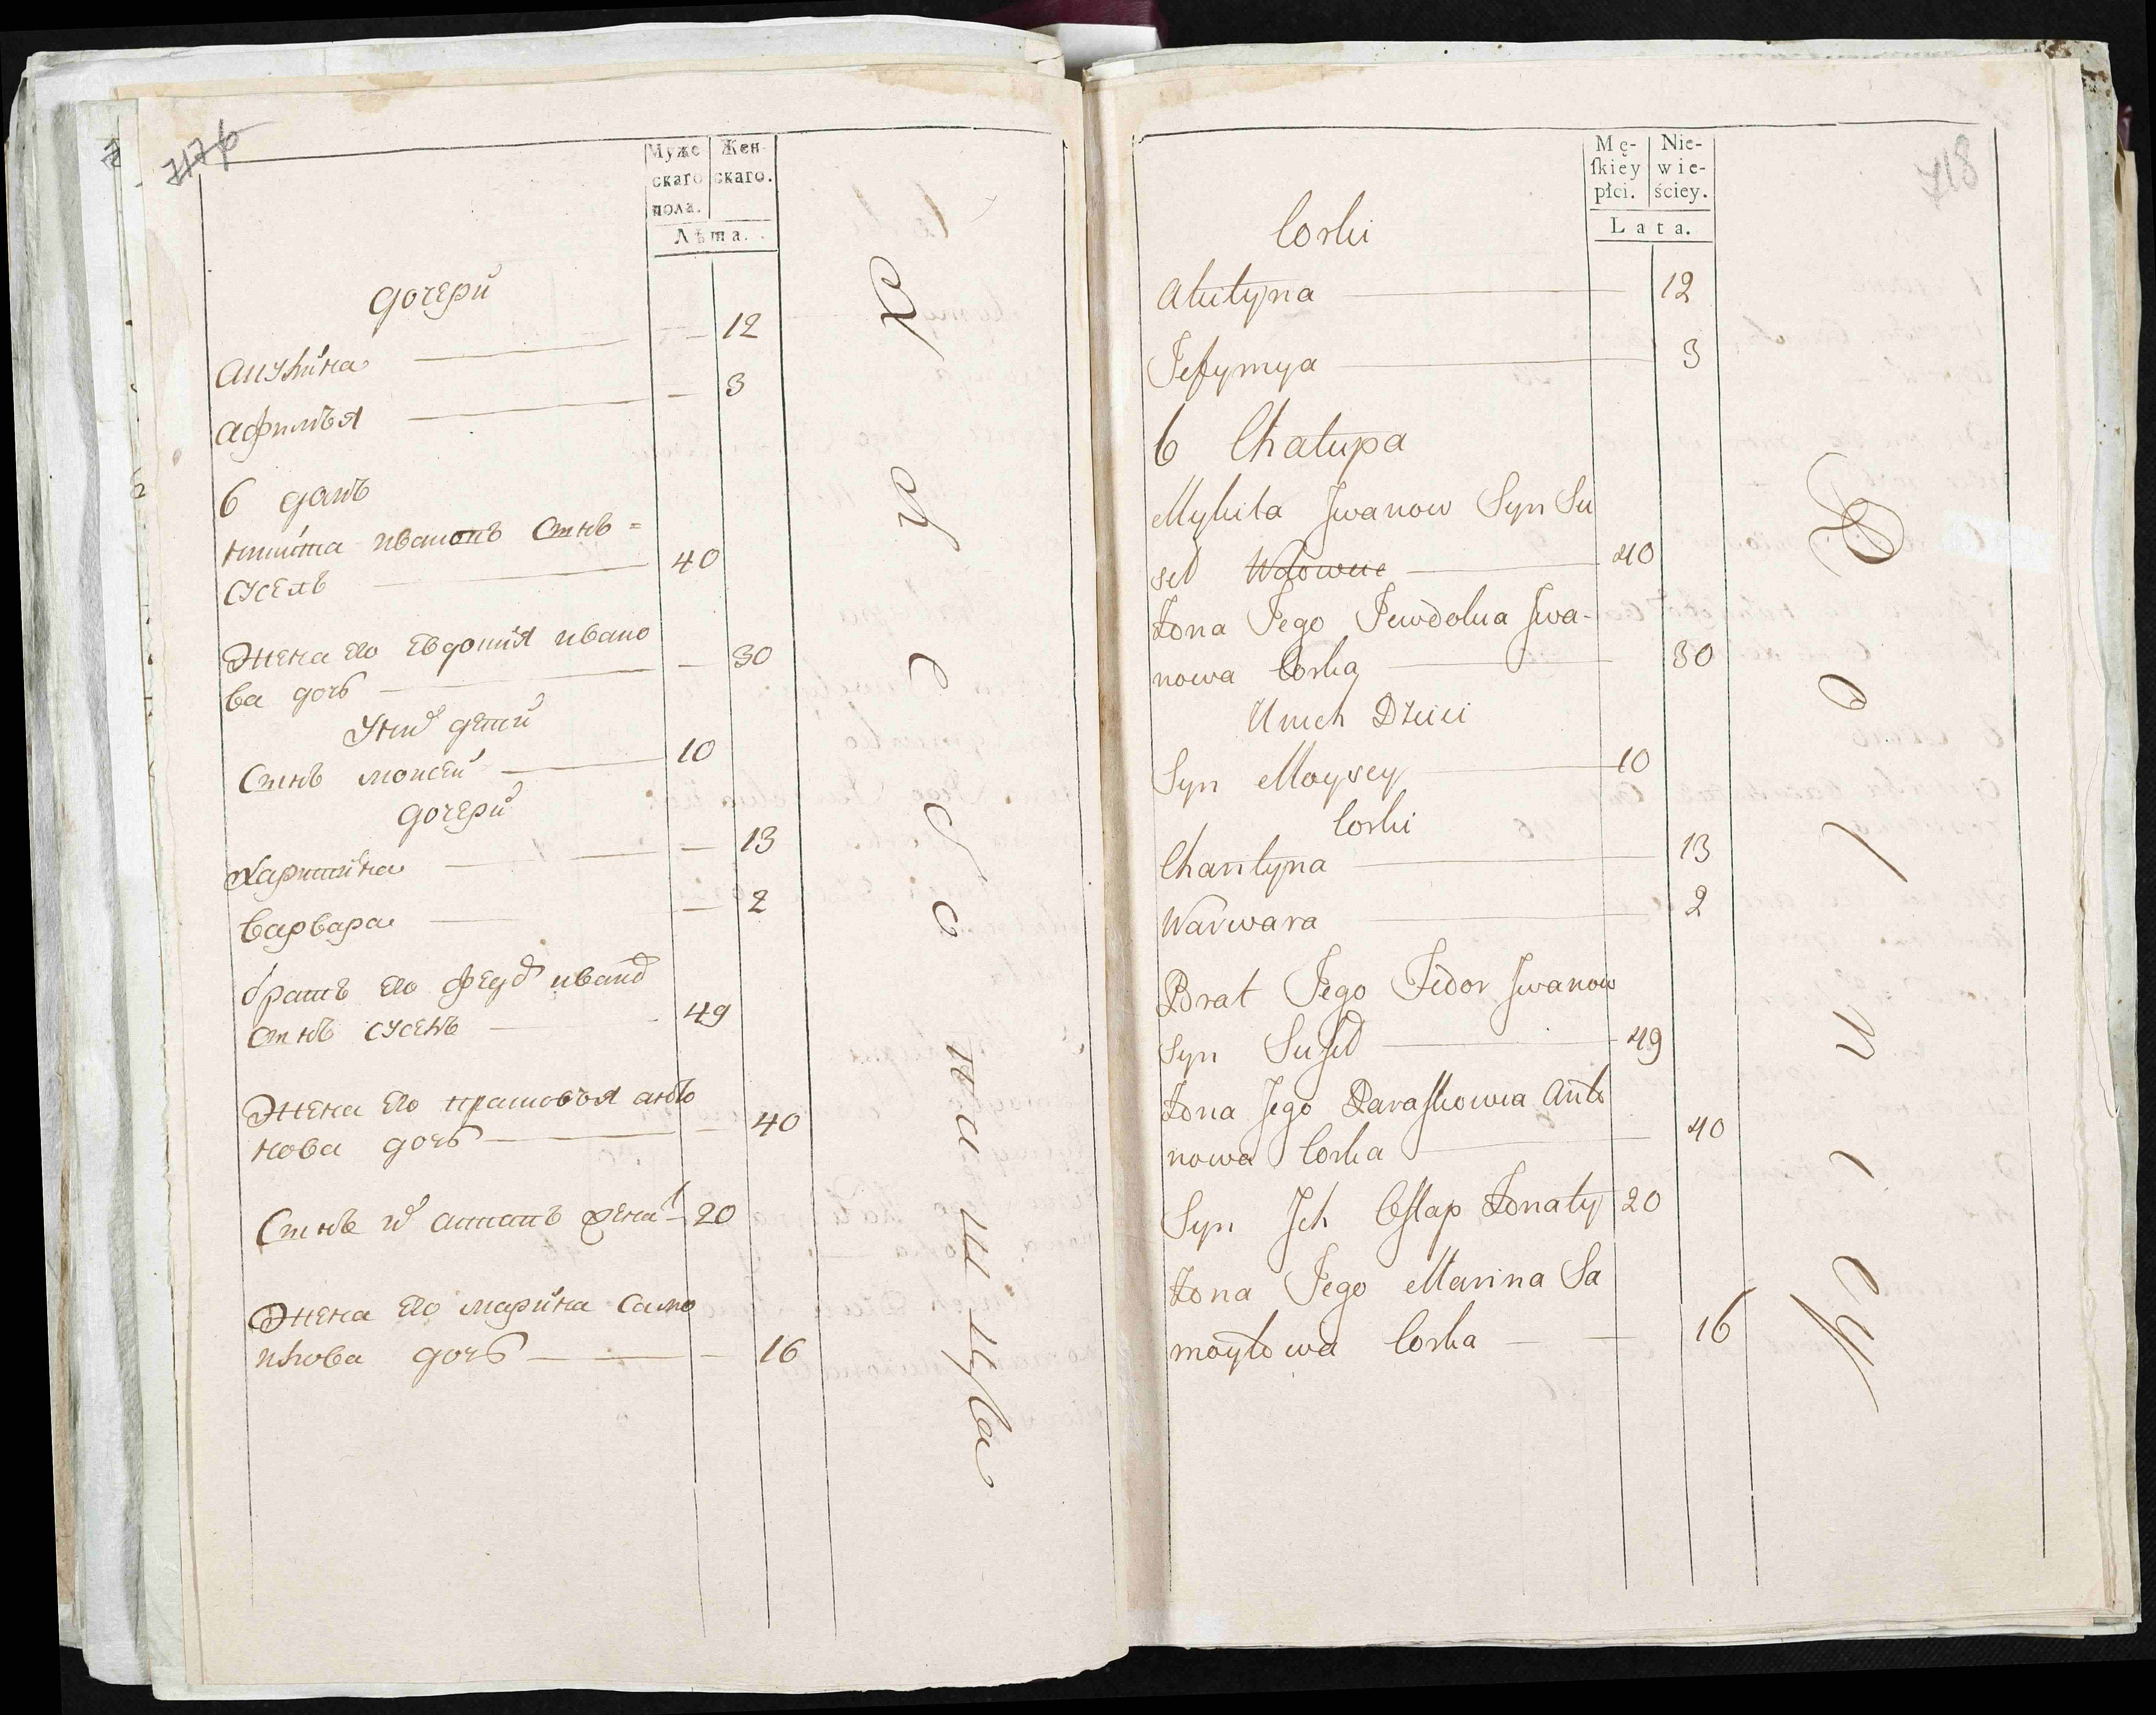 717б
Муже
скаго
пола.
Жен-
скаго.
Лѣта.
дочери
Акулина — 12
Афимья — 3
6 домъ
никита ивановъ Синъ =
сусель — 40
Жена его Евдокия ивано
ва дочь — 30
У них дети
Синъ моисей — 10
дочери
Харитина — 13
варвара — 2
братъ его федор иванов
Синъ сусель — 49
Жена его прасковья анто
нова дочь — 40
Синъ их женат — 20
Жена его марина само
йлова дочь — 16
718
Mę-
ſkiey
płci.
Nie-
wie-
ściey.
Lata.
Corki
Akulyna — 12
Jefymya — 3
6 Chałupa
Mykita Jwanow Syn Su
seł Wdowiec — 40
Żona Jego Jewdokia Jwa-
nowa Corka — 30
U nich Dzieci
Syn Moysey — 10
Corki
Charityna — 13
Warwara — 2
Brat Jego Fedor Jwanow
Syn Suseł — 49
Żona Jego Paraskowia Anto
nowa Corka — 40
Syn Jch Ostap Żonaty 20
Żona Jego Marina Sa
moyłowa Corka — 16